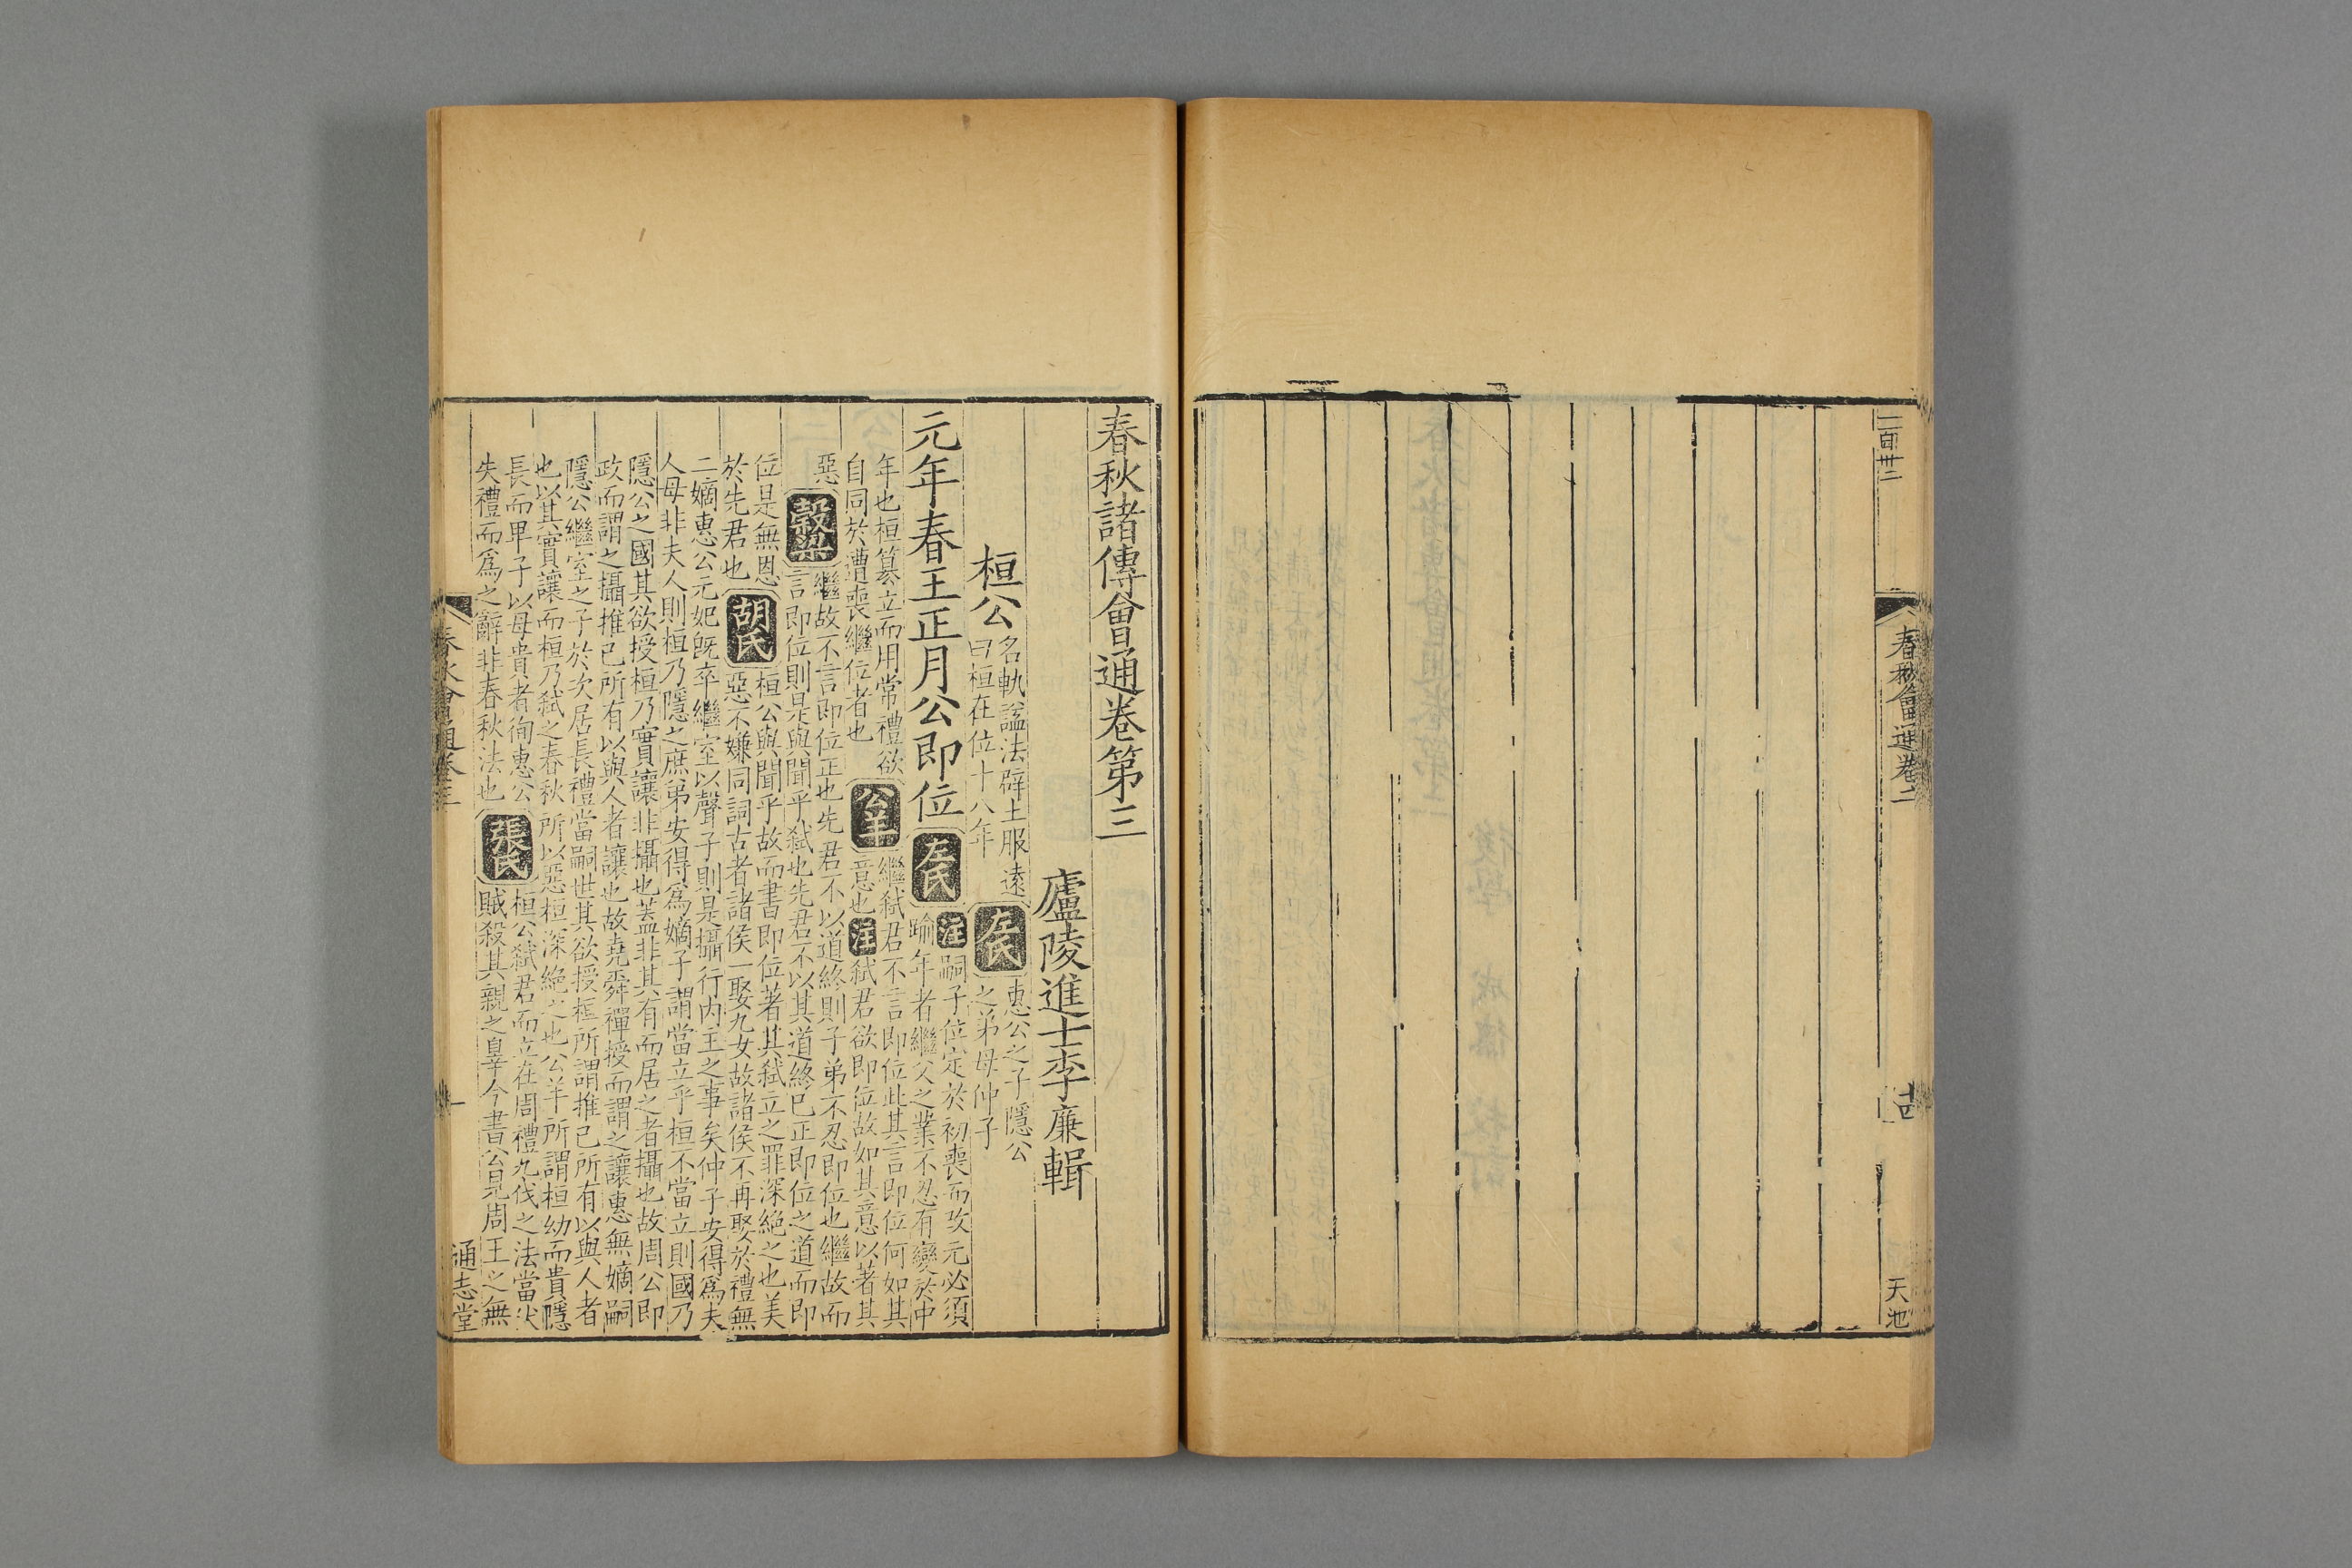 二百卅二
春秋會通卷二
天池
春秋諸傳會通卷第三
廬陵進士李廉輯
桓公
名軌諡法辟土服遠
曰桓在位十八年
左氏
惠公之子隱公
之弟母仲子
元年春王正月公即位
左氏
注嗣子位定於初喪而改元必須
踰年者繼父之業不忍有變於中
年也桓篡立而用常禮欲
自同於遭喪繼位者也
公羊
繼弒君不言即位此其言即位何如其
意也注弒君欲即位故如其意以著其
惡
穀梁
繼故不言即位正也先君不以道終則子弟不忍即位也繼故而
言即位則是與聞乎弒也先君不以其道終已正即位之道而即
位是無恩
於先君也
胡氏
桓公與聞乎故而書即位著其弒立之罪深絕之也美
惡不嫌同詞古者諸侯一娶九女故諸侯不再娶於禮無
二嫡惠公元妃既卒繼室以聲子則是攝行內主之事矣仲子安得爲夫
人母非夫人則桓乃隱之庶弟安得爲嫡子謂當立乎桓不當立則國乃
隱公之國其欲授桓乃實讓非攝也蓋非其有而居之者攝也故周公即
政而謂之攝推已所有以與人者讓也故堯舜禪授而謂之讓惠無嫡嗣
隱公繼室之子於次居長禮當嗣世其欲授桓所謂推已所有以與人者
也以其實讓而桓乃弒之春秋所以惡桓深絕之也公羊所謂桓幼而貴隱
長而卑子以母貴者徇惠公
失禮而爲之辭非春秋法也
張氏
桓公弒君而立在周禮九伐之法當伏
賊殺其親之辠今書公見周王之無
春秋會通卷三
一
通志堂